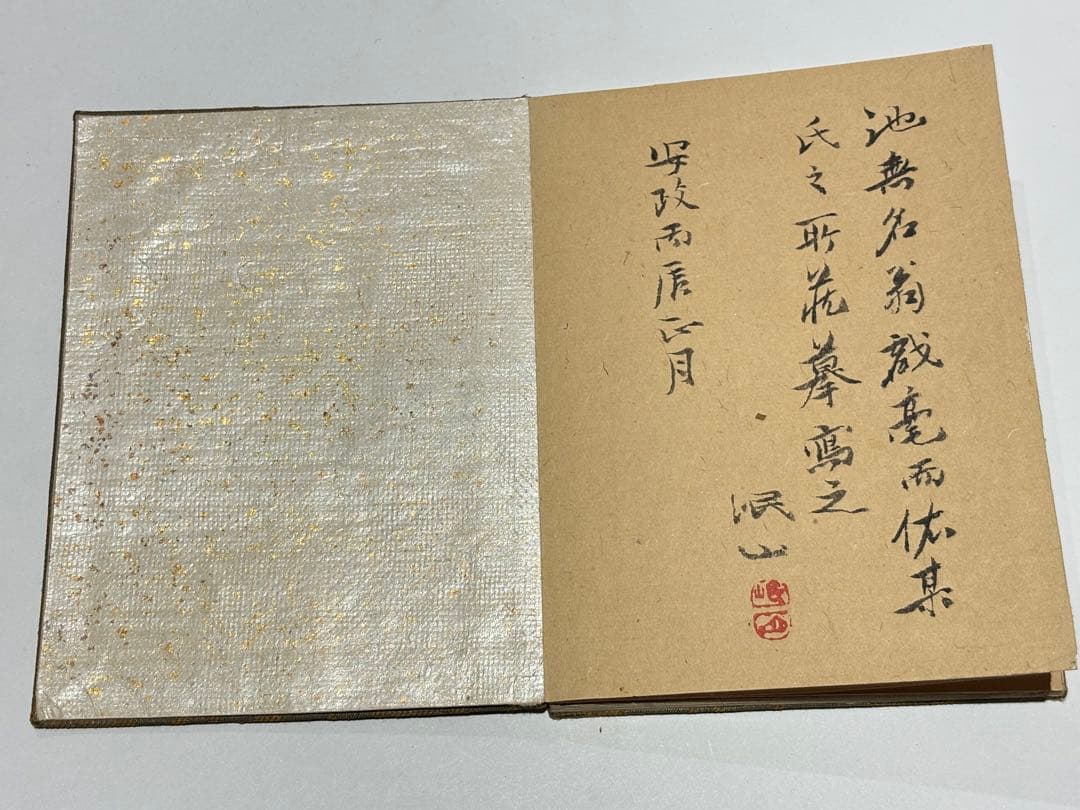 池無名翁戯毫而依某
氏之所蔵摹寫之
岷山
岷山
安政丙辰正月